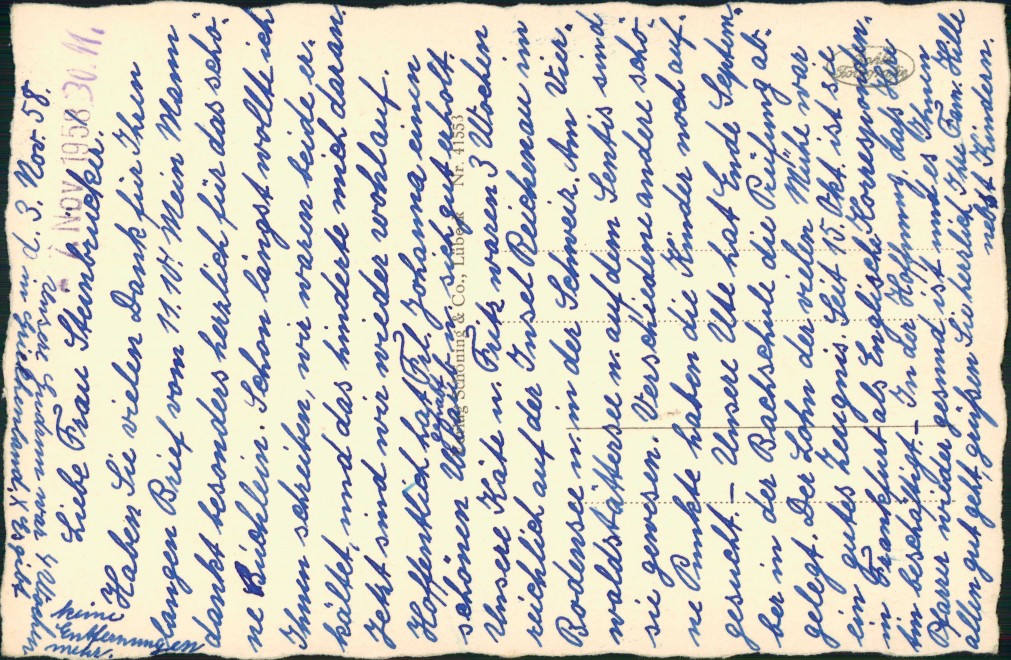 Nov. 1958 30.11.
z. Zt. 3. Nov. 58.
Liebe Frau Steinbrücker.
Haben Sie vielen Dank für Ihren
langen Brief vom 11.10! Mein Mann
dankt besonders herzlich für das schö-
ne Büchlein. Schon längst wollte ich
Ihnen schreiben, wir waren beide er-
kältet, und das hinderte mich daran.
Jetzt sind wir wieder wohlauf.
Hoffentlich hat Frl. Johanna einen
schönen Urlaub u. sich gut erholt.
Unsere Käte u. Fritz waren 3 Wochen
reichlich auf der Insel Reichenau im
Bodensee u. in der Schweiz. Am Vier-
waldstättersee u. auf dem Sentis sind
sie gewesen. Verschiedene andere schö-
ne Punkte haben die Kinder noch auf-
gesucht. – Unsere Ute hat Ende Septem-
ber in der Bachschule die Prüfung ab-
gelegt. Der Lohn der vielen Mühe war
ein gutes Zeugnis. Seit 15. Okt. ist sie
in Frankfurt als Englische Korresponden-
tin beschäftigt. – In der Hoffnung, daß Herr
Pfarrer wieder gesund ist und es Ihnen
allen gut geht, grüßen Sie herzlich Ihre Fam. Hille
nebst Kindern.
Unsere Gudrun war 4 Wochen
in Griechenland. Es gibt
keine
Entfernungen
mehr.
Verlag Schöning & Co., Lübeck Nr. 41553
Echte
Fotografie